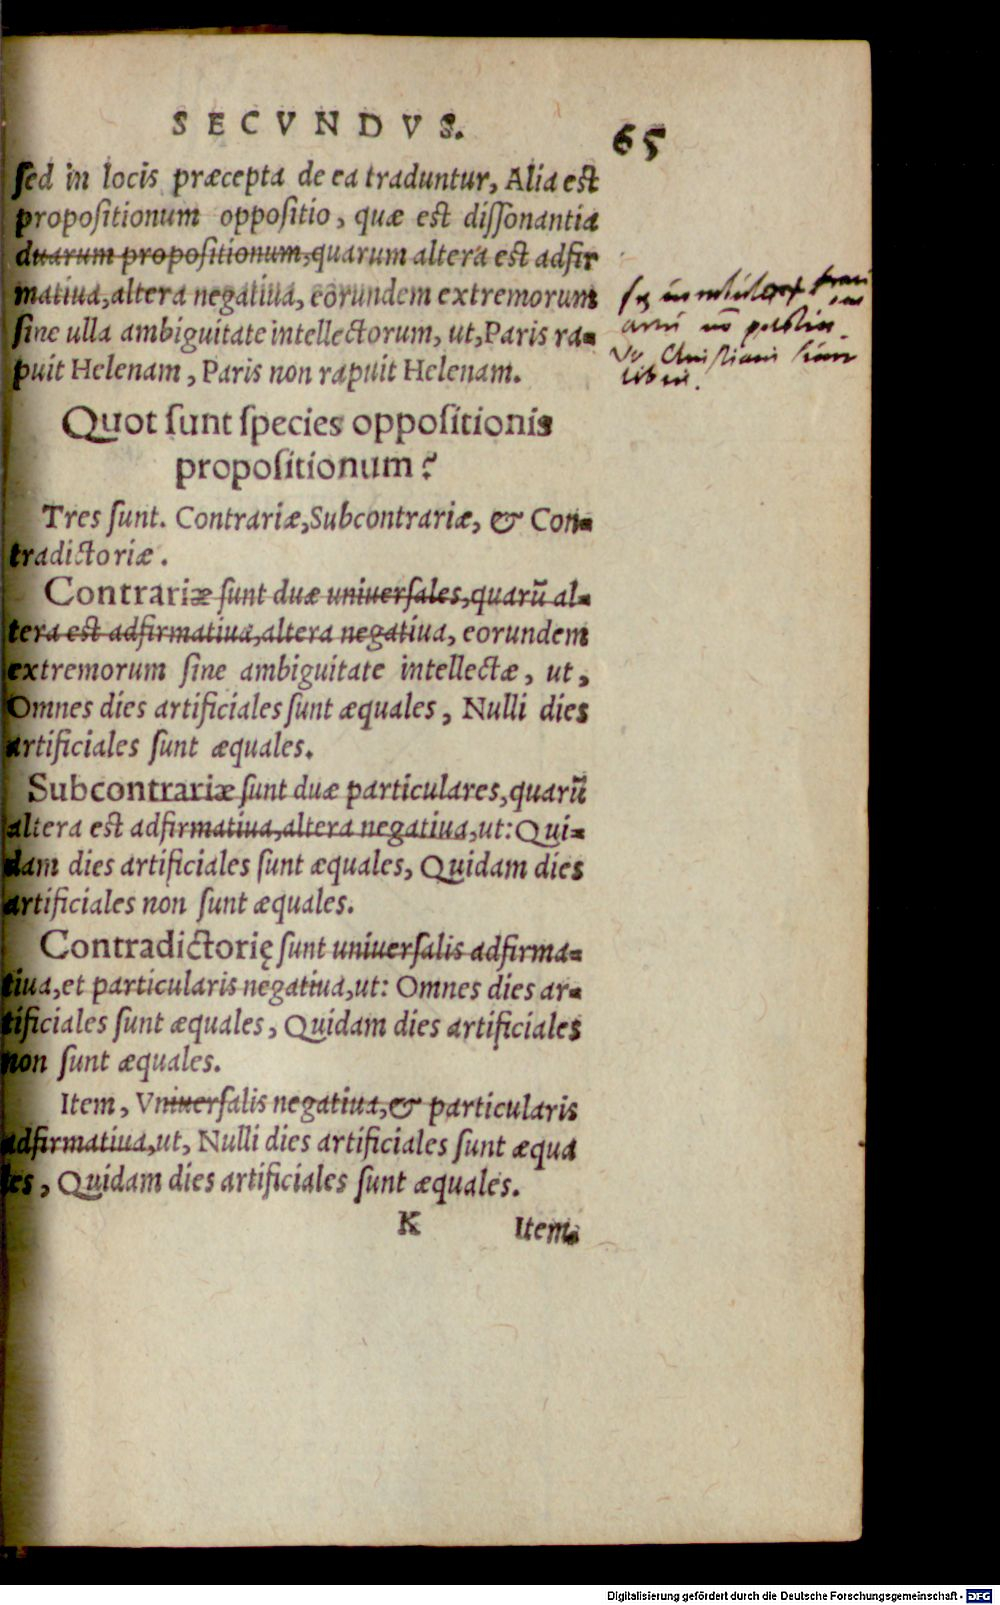 SECVNDVS. 65
sed in locis præcepta de ea traduntur, Alia est
propositionum oppositio, quæ est dissonantia
duarum propositionum, quarum altera est adfir
matiua, altera negatiua, eorundem extremorum
sine ulla ambiguitate intellectorum, ut, Paris ra-
puit Helenam, Paris non rapuit Helenam.
Quot sunt species oppositionis
propositionum?
Tres sunt. Contrariæ, Subcontrariæ, & Con-
tradictoriæ.
Contrariæ sunt duæ uniuersales, quarū al-
tera est adfirmatiua, altera negatiua, eorundem
extremorum sine ambiguitate intellectæ, ut,
Omnes dies artificiales sunt æquales, Nulli dies
artificiales sunt æquales.
Subcontrariæ sunt duæ particulares, quarū
altera est adfirmatiua, altera negatiua, ut: Qui-
dam dies artificiales sunt æquales, Quidam dies
artificiales non sunt æquales.
Contradictorię sunt uniuersalis adfirma-
tiua, et particularis negatiua, ut: Omnes dies ar-
tificiales sunt æquales, Quidam dies artificiales
non sunt æquales.
Item, Vniuersalis negatiua, & particularis
adfirmatiua, ut, Nulli dies artificiales sunt æqua
les, Quidam dies artificiales sunt æquales.
K Item
Christiani sunt
liberi.
Digitalisierung gefördert durch die Deutsche Forschungsgemeinschaft - DFG